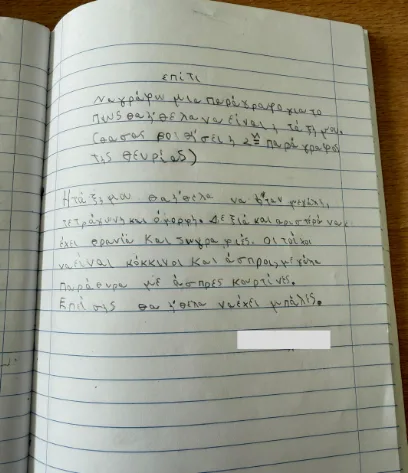 επίτι
Να γράψω μια παράγραφο για το
πως θα ήθελα να είναι η τάξη μου.
(θα σας βοηθήσει η 2η παράγραφος
της θεωρίας)
Η τάξη μου θα ήθελα να ήταν μεγάλη,
τετράγωνη και όμορφη. Δεξιά και αριστερά να
έχει θρανία και ζωγραφιές. Οι τοίχοι
να είναι κόκκινοι και άσπροι, μεγάλα
παράθυρα με άσπρες κουρτίνες.
Επίσης θα ήθελα να έχει μπάλες.